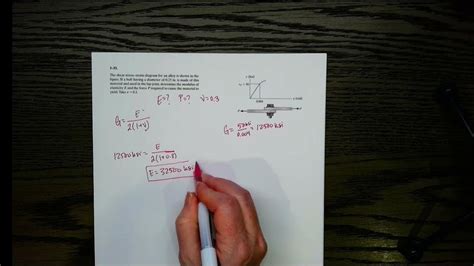 The shear stress-strain diagram for an alloy is shown in the
figure. If a bolt having a diameter of 0.25 in. is made of this
material and used in the lap joint, determine the modulus of
elasticity E and the force P required to cause the material to
yield. Take ν = 0.3.
E=? P=? ν=0.3
G = E / 2(1+ν)
0.004
G = / 0.004 = 12500 ksi
12500 ksi = E / 2(1+0.3)
E = 32500 ksi